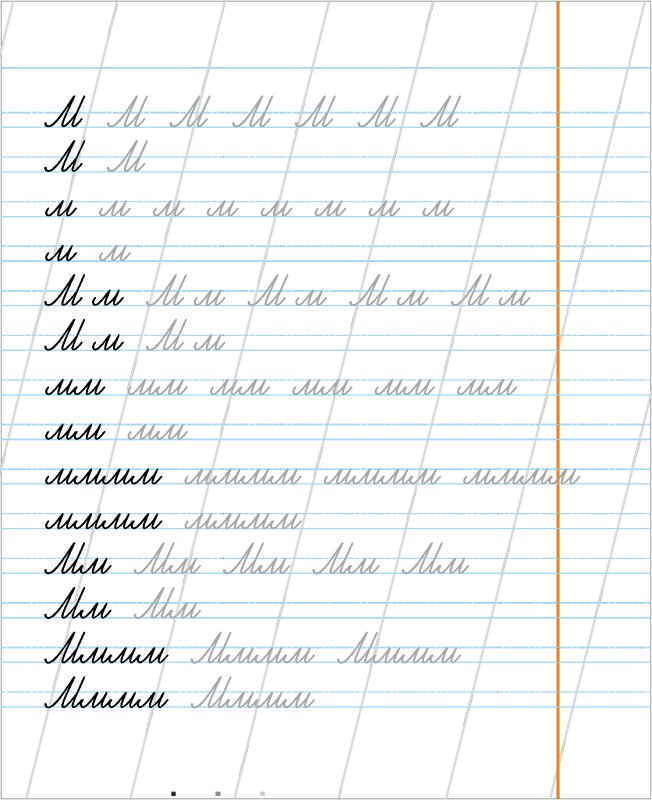 М М М М М М М
М М
м м м м м м м м
м м
М м М м М м М м М м
М м М м
мм мм мм мм мм мм
мм мм
мммм мммм мммм мммм
мммм мммм
Мм Мм Мм Мм Мм
Мм Мм
Мммм Мммм Мммм
Мммм Мммм